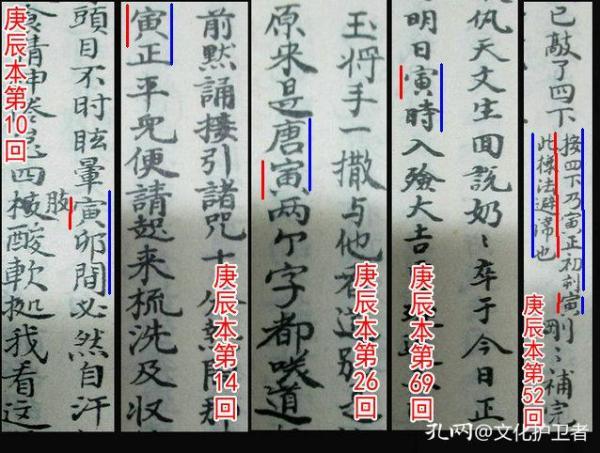 頭目不时眩暈寅卯間必然自汗
食精神倦怠四肢酸軟 我看這
庚辰本第10回
前默誦接引諸咒十分熱鬧那
寅正平兒便請起来梳洗及収
庚辰本第14回
玉将手一撒与他看道別是
原来是唐寅两个字都咲道
庚辰本第26回
天文生回說奶〻卒于今日正
明日寅時入殮大吉
庚辰本第69回
已敲了四下
按四下乃寅正初刻寅
此樣法避諱也
剛〻補完
庚辰本第52回
孔网@文化护卫者